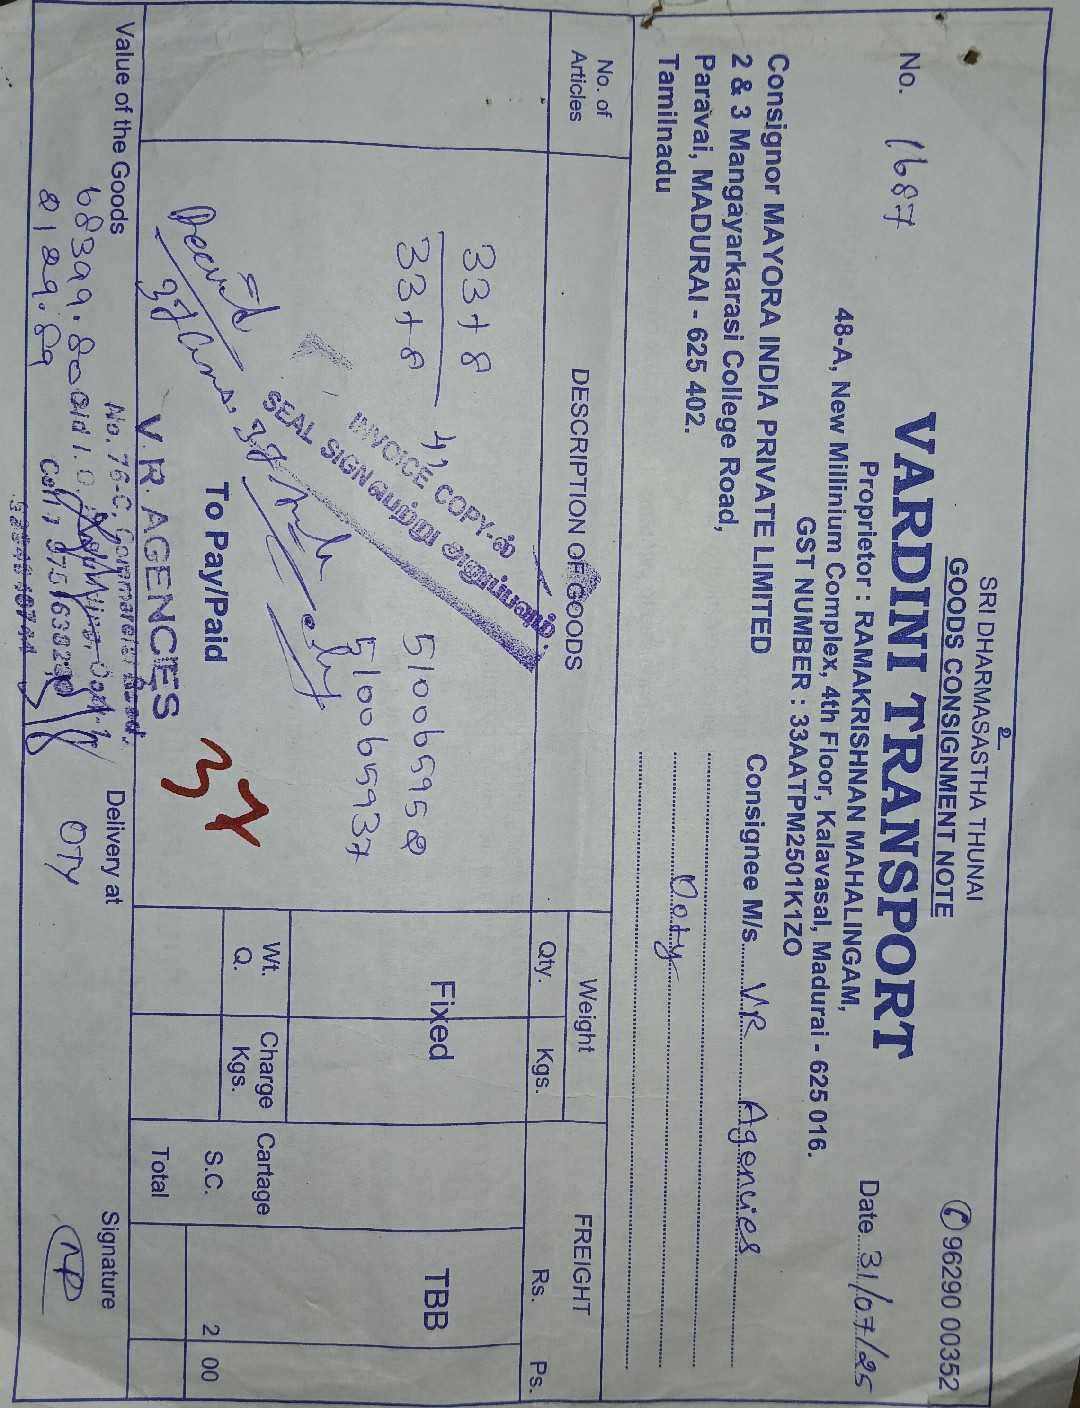 உ
SRI DHARMASASTHA THUNAI
GOODS CONSIGNMENT NOTE
✆ 96290 00352
VARDINI TRANSPORT
No. 1687
Proprietor : RAMAKRISHNAN MAHALINGAM,
Date 31/07/25
48-A, New Millinium Complex, 4th Floor, Kalavasal, Madurai - 625 016.
GST NUMBER : 33AATPM2501K1ZO
Consignor MAYORA INDIA PRIVATE LIMITED
2 & 3 Mangayarkarasi College Road,
Paravai, MADURAI - 625 402.
Tamilnadu
Consignee M/s VR Agencies
Ooty
No. of Articles
DESCRIPTION OF GOODS
Weight
Qty. Kgs.
FREIGHT
Rs. Ps.
33+8
33+8
510065958
510065937
INVOICE COPY-ல்
SEAL SIGN பெற்று அனுப்பவும்.
Fixed
TBB
Wt. Q.
Charge Kgs.
Cartage
S.C. 2 00
Total
To Pay/Paid
37
V.R. AGENCIES
No. 76-C, Commercial Road,
Value of the Goods
68399.80
2129.89
Delivery at
OTY
Signature